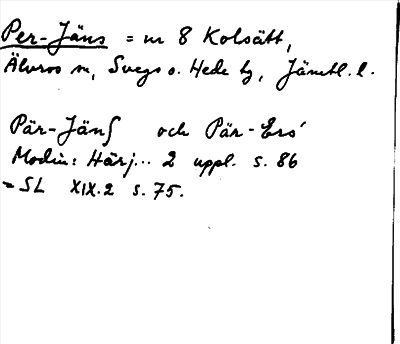 Per-Jäns = nr 8 Kolsätt,
Älvros sn, Svegs o. Hede tg, Jämtl. l.
Pär-Jäns och Pär-Ers'
Modin: Härj... 2 uppl. s. 86
= SL XIX.2 s. 75.